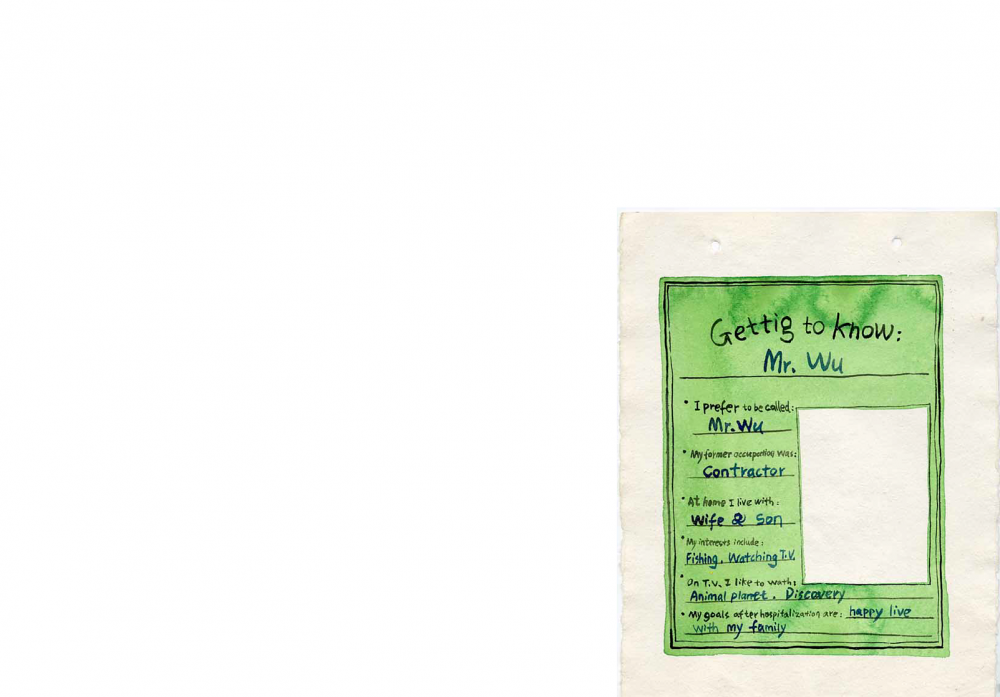 Gettig to know:
Mr. Wu
• I prefer to be called:
Mr. Wu
• My former occupation was:
Contractor
• At home I live with:
Wife & Son
• My interests include:
Fishing, Watching T.V.
• On T.V. I like to wath:
Animal planet, Discovery
• My goals after hospitalization are: happy live
with my family